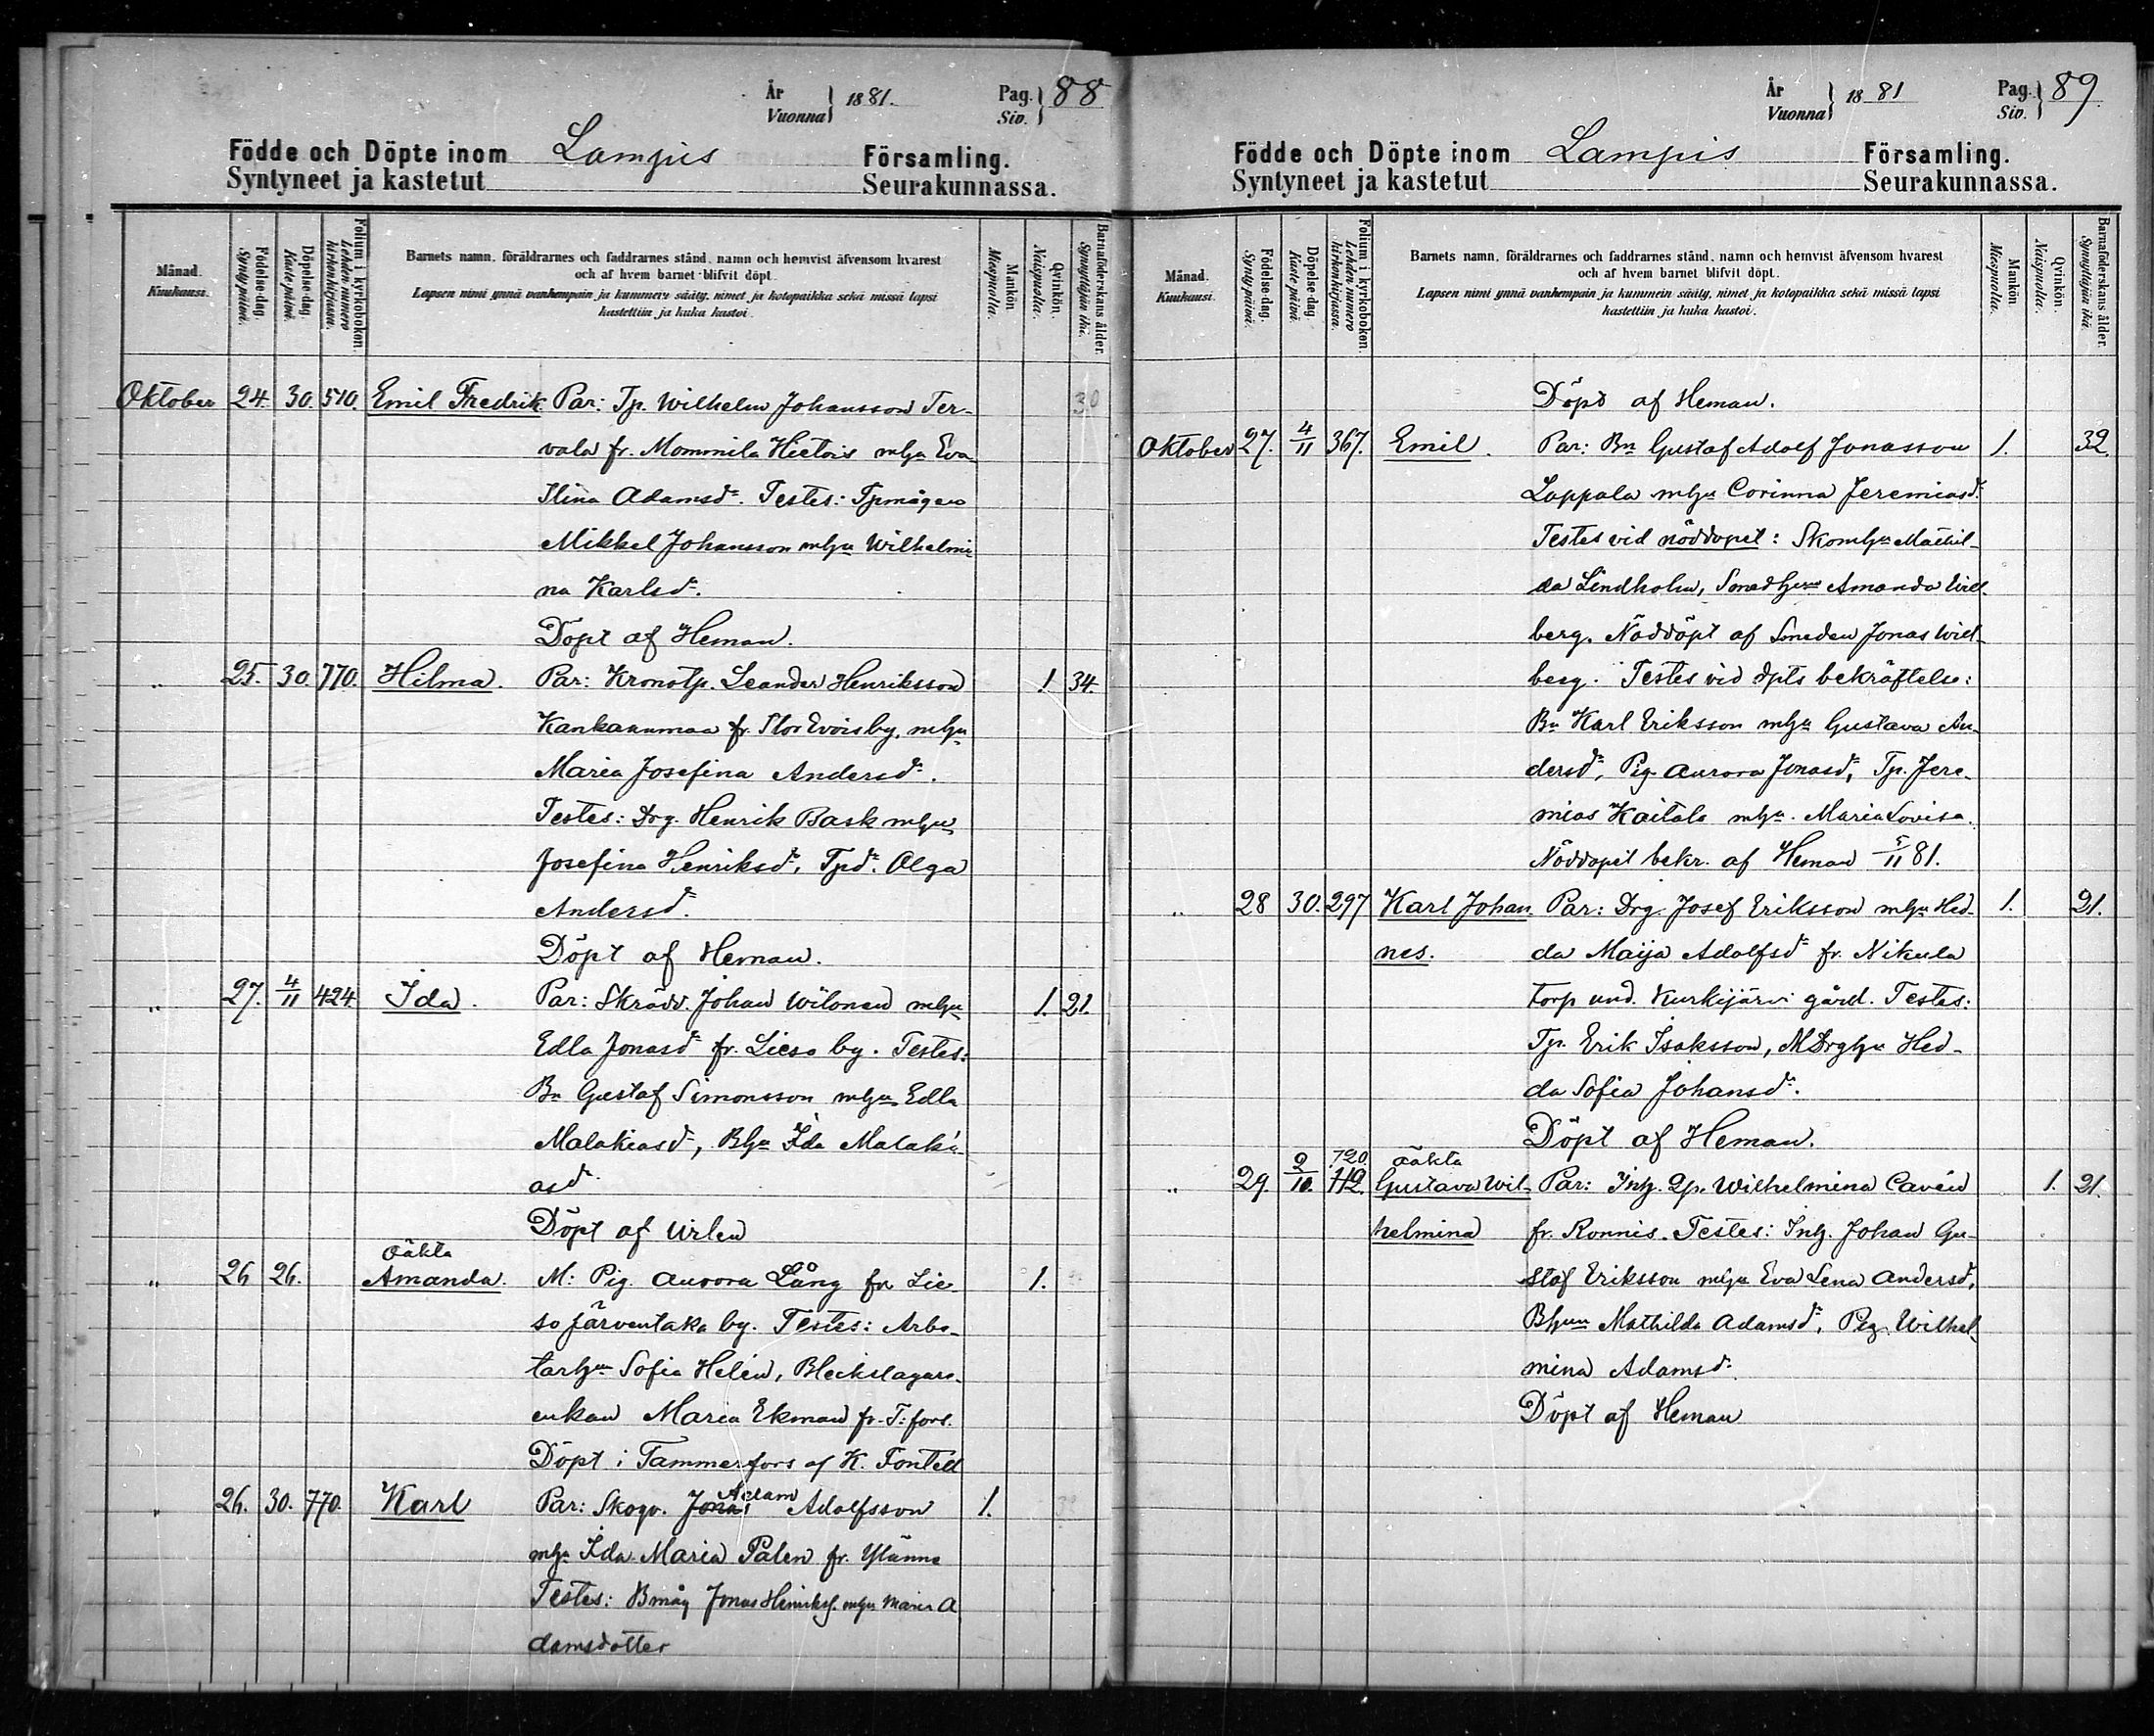 År
Vuonna } 1881.
Pag.
Siv. } 88
Födde och Döpte inom Lampis Församling.
Syntyneet ja kastetut Seurakunnassa.
Månad.
Kuukausi.
Födelse-dag.
Synty-päivä.
Döpelse-dag.
Kaste-päivä.
Folium i kyrkoboken.
Lehden numero kirkonkirjassa.
Barnets namn, föräldrarnes och faddrarnes stånd, namn och hemvist äfvensom hvarest
och af hvem barnet blifvit döpt.
Lapsen nimi ynnä vanhempain ja kummein sääty, nimet ja kotopaikka sekä missä lapsi
kastettiin ja kuka kastoi.
Mankön.
Miespuolta.
Qvinkön.
Naispuolta.
Barnaföderskans ålder.
Synnyttäjän ikä.
Oktober 24. 30. 510. Emil Fredrik. Par: Tp. Wilhelm Johansson Ter- 30
vala fr. Mommila Hietois mhu Eva
Ilina Adamsdr. Testes: Tpmågen
Mikkel Johansson mhu Wilhelmi-
na Karlsdr.
Döpt af Heman.
„ 25. 30. 770. Hilma. Par: Kronotp. Leander Henriksson 1. 34.
Kankaanmaa fr. Stor Evois by, mhu
Maria Josefina Andersdr.
Testes: Drg. Henrik Bask mhu
Josefina Henriksdr, Tpdr. Olga
Andersdr.
Döpt af Heman.
„ 27. 4/11 424. Ida. Par: Skrädd. Johan Wilonen mhu 1. 21.
Edla Jonasdr fr. Lieso by. Testes:
Bn Gustaf Simonsson mhu Edla
Malakiasdr, Bhu Ida Malaki-
asdr.
Döpt af Urlen
oäkta
„ 26 26. Amanda. M: Pig. Aurora Lång fr Lie- 1.
so Järventaka by. Testes: Arbe-
tarhu Sofia Helén, Bleckslagare-
enkan Maria Ekman fr. T:fors.
Döpt i Tammerfors af K. Fontell
Adam
„ 26. 30. 770. Karl Par: Skogv. Jonas Adolfsson 1.
mhu Ida Maria Palen fr. Ylänne
Testes: Bmåg Jonas Henrikss. mhu Maria A
damsdotter
År
Vuonna } 1881
Pag.
Siv. } 89.
Födde och Döpte inom Lampis Församling.
Syntyneet ja kastetut Seurakunnassa.
Månad.
Kuukausi.
Födelse-dag.
Synty-päivä.
Döpelse-dag.
Kaste-päivä.
Folium i kyrkoboken.
Lehden numero kirkonkirjassa.
Barnets namn, föräldrarnes och faddrarnes stånd, namn och hemvist äfvensom hvarest
och af hvem barnet blifvit döpt.
Lapsen nimi ynnä vanhempain ja kummein sääty, nimet ja kotopaikka sekä missä lapsi
kastettiin ja kuka kastoi.
Mankön
Miespuolta.
Qvinkön.
Naispuolta.
Barnaföderskans ålder.
Synnyttäjän ikä.
Döpt af Heman.
Oktober 27. 4/11 367. Emil. Par: Bn Gustaf Adolf Jonasson 1. 32.
Lappala mhu Corinna Jeremiasdr.
Testes vid nöddopet: Skomhu Mathil-
da Lindholm, Smedhun Amanda Wid-
berg. Nöddöpt af Smeden Jonas Wid-
berg. Testes vid dpts bekräftelse:
Bn Karl Eriksson mhu Gustava An-
dersdr, Pig. Aurora Jonasdr, Tp. Jere-
mias Kaitala mhu. Maria Lovisa.
Nöddopet bekr. af Heman 5/11 81.
„ 28 30. 297 Karl Johan- Par: Drg. Josef Eriksson mhu Hed- 1. 21.
nes. da Maija Adolfsdr fr. Nikula
torp und. Kurkijärvi gård. Testes:
Tp. Erik Isaksson, MDrghu Hed-
da Sofia Johansdr.
Döpt af Heman.
720. oäkta
„ 29. 2/10. 112. Gustava Wil- Par: Inh. Qp. Wilhelmina Cavén 1. 21.
helmina fr. Ronnis. Testes: Inh. Johan Gu-
staf Eriksson mhu Eva Lena Andersdr,
Bhun Mathilda Adamsdr, Pig. Wilhel-
mina Adamsdr.
Döpt af Heman